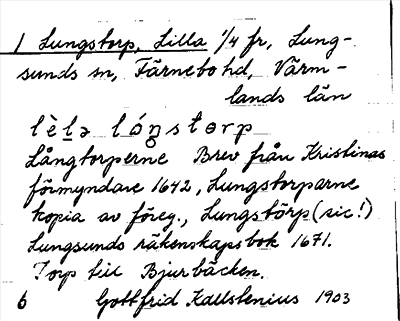 1 Lungstorp, Lilla 1/4 fr, Lung-
sunds sn, Färnebo hd, Värm-
lands län
lèḻə lóŋstɵrp
Långtorperne Brev från Kristinas
förmyndare 1642, Lungstorparne
kopia av föreg., Lungstörp (sic!)
Lungsunds räkenskapsbok 1671.
Torp till Bjurbäcken.
6 Gottfrid Kallstenius 1903